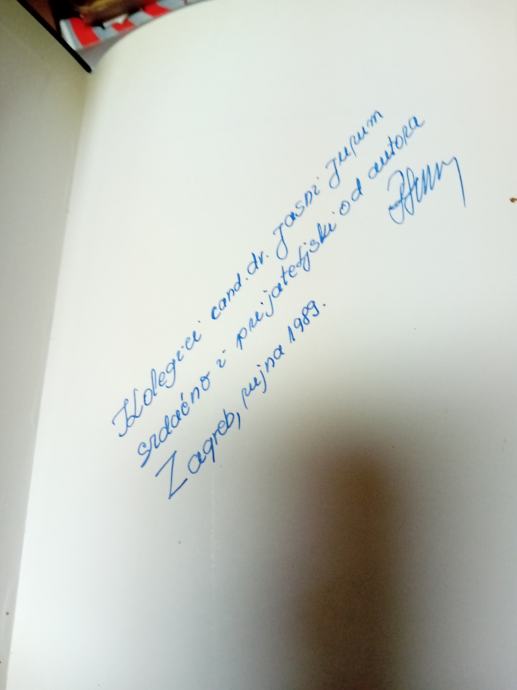 Kolegici cand. dr. Jasni
srdačno i prijateljski od autora
Zagreb, rujna 1989.